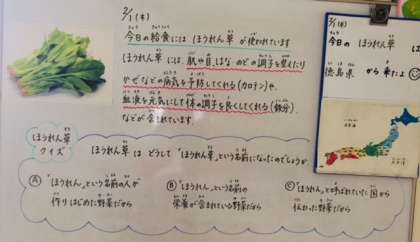 2/1(木)
今日の給食には ほうれん草 が使われています
ほうれん草 には、肌や目、はな のどの調子を整えたり
かぜなどの病気を予防してくれる(カロテン)や、
血液を元気にして体の調子を良くしてくれる(鉄分)
などが含まれています。
ほうれん草
クイズ
ほうれん草 は どうして「ほうれん草」という名前になったのでしょうか
Ⓐ「ほうれん」という名前の人が
作りはじめた野菜だから
Ⓑ「ほうれん」という名前の
栄養が含まれている野菜だから
Ⓒ「ほうれん」と呼ばれていた国から
伝わった野菜だから
2/1(木)
今日の ほうれん草 は
徳島県 から来たよ